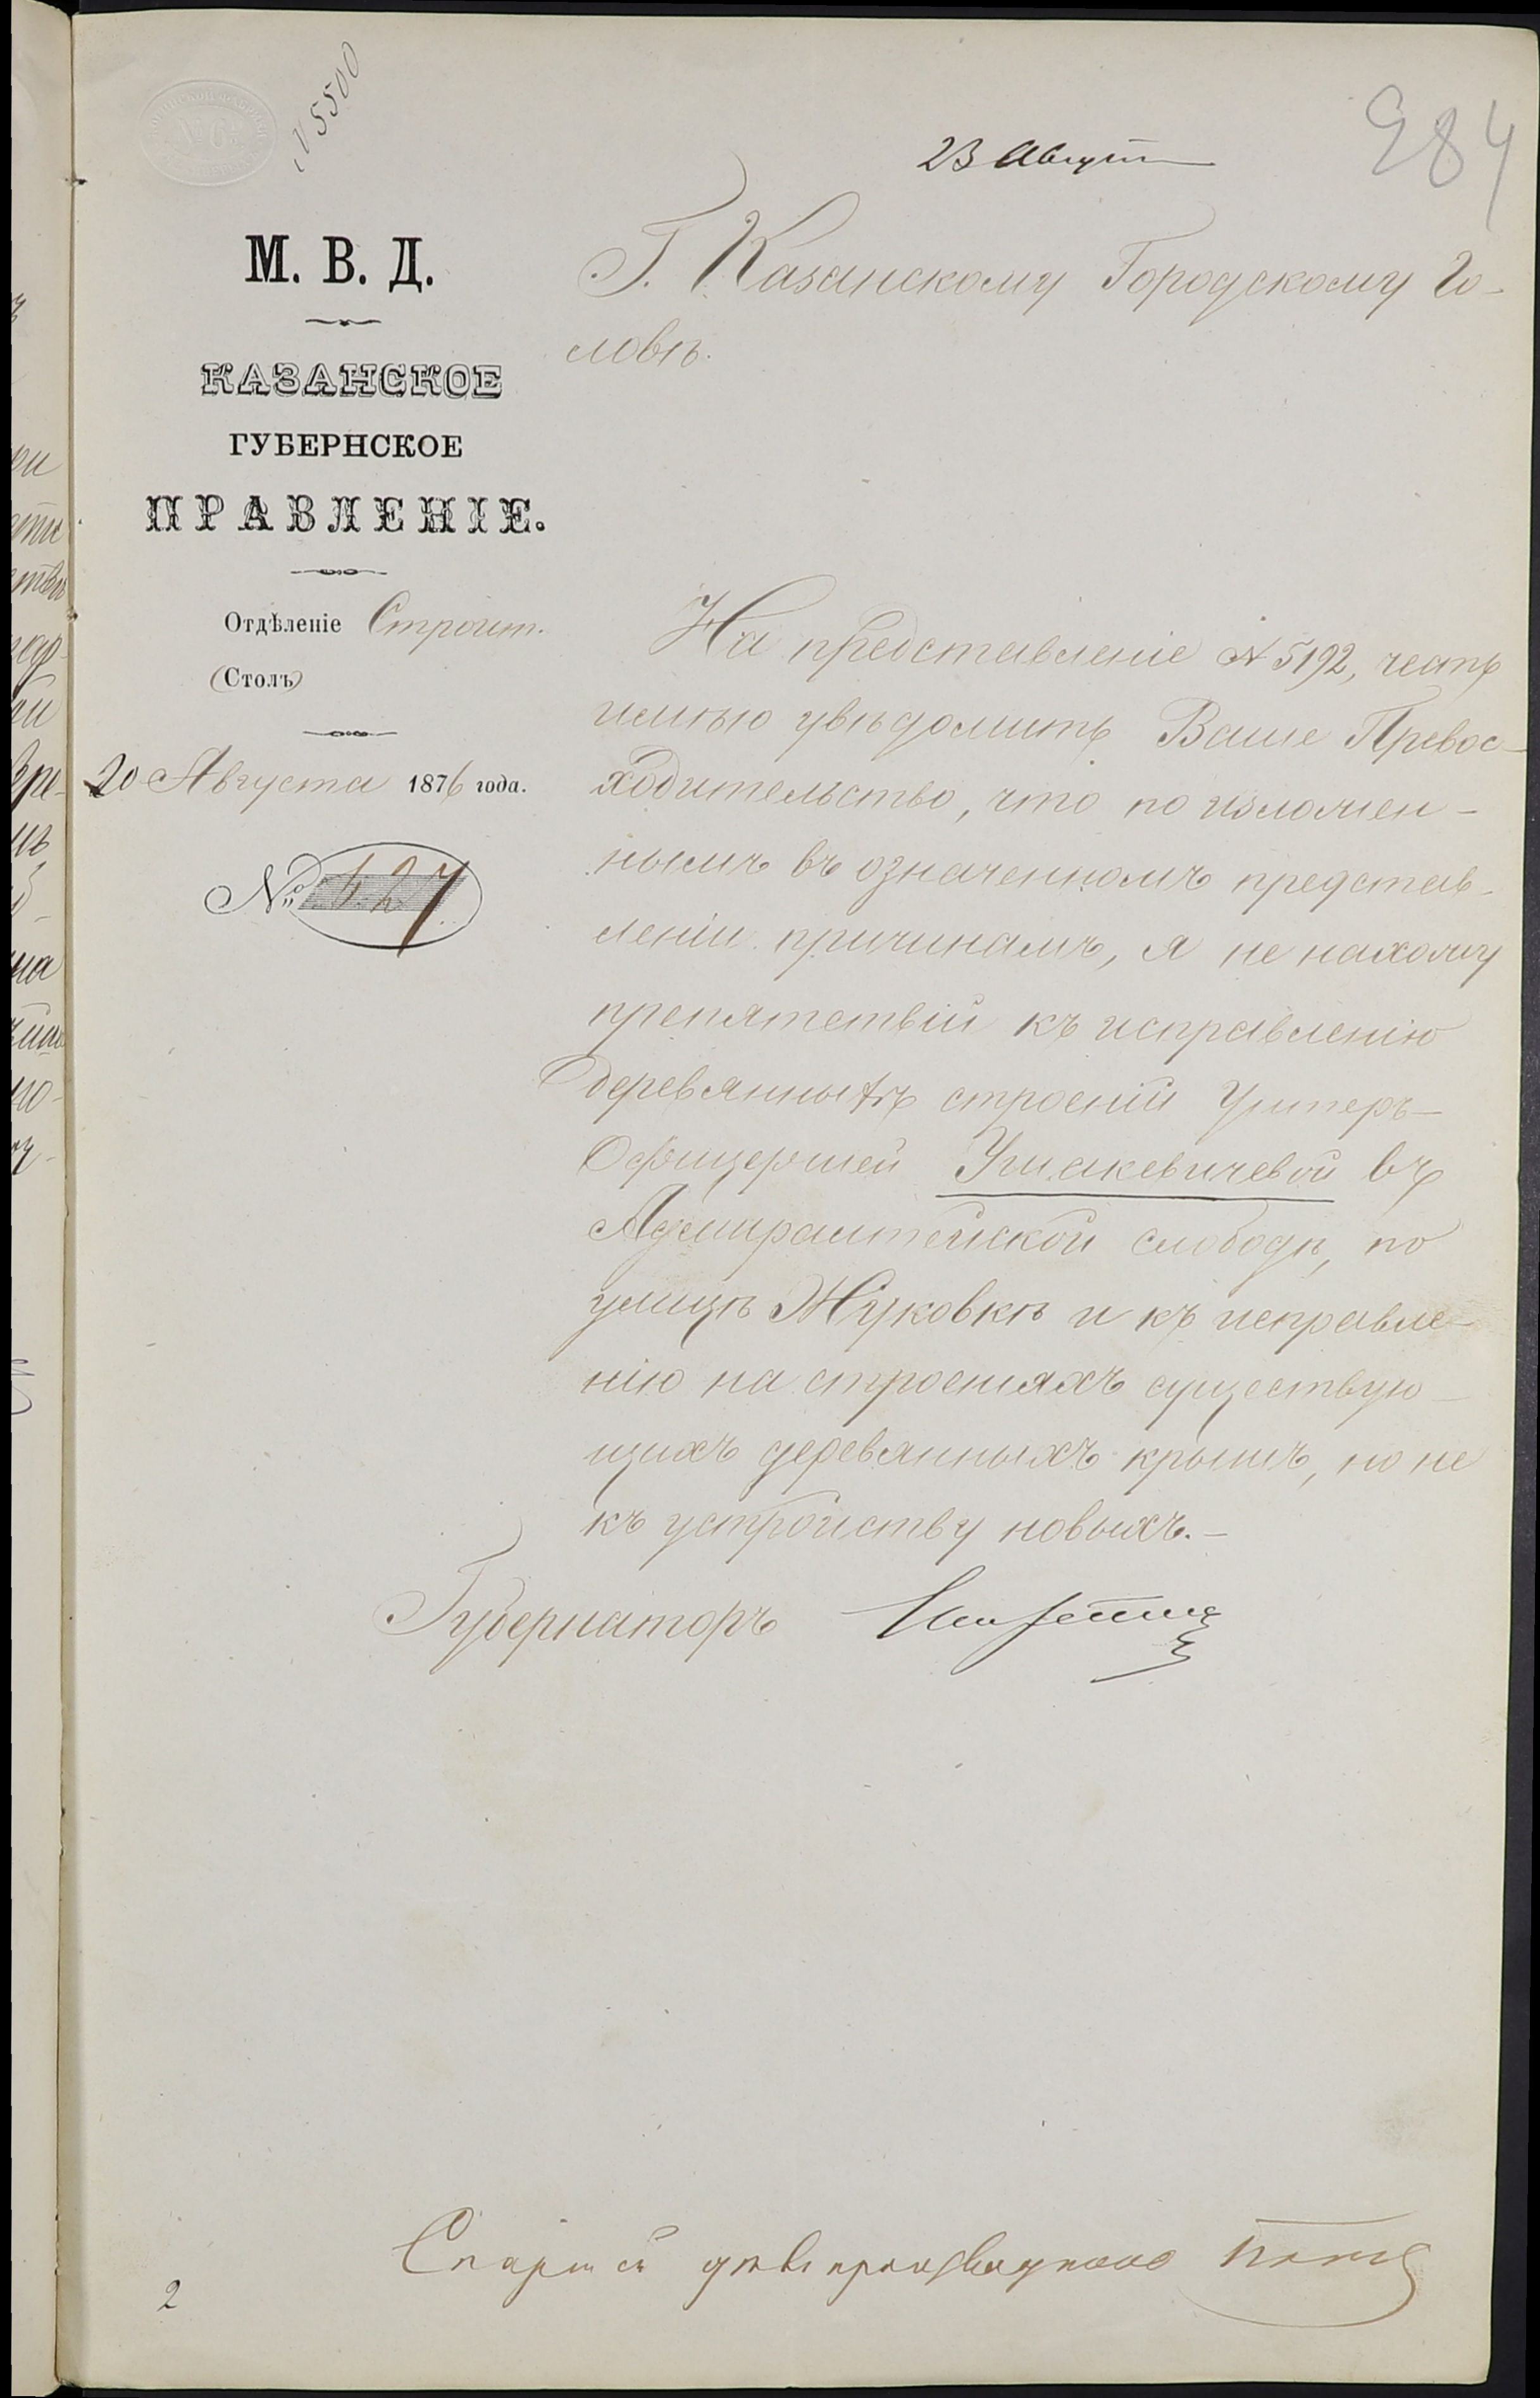 N 5500
984
23 Август
М. В. Д.
КАЗАНСКОЕ
ГУБЕРНСКОЕ
ПРАВЛЕНІЕ.
Отдѣленіе Строит.
(Столъ)
20 Августа 1876 года.
№ 527
Г. Казанскому Городскому Го-
ловѣ.
На представленіе № 5192, честь
имѣю увѣдомить Ваше Превос-
ходительство, что по изложен-
нымъ въ означенномъ представ-
леніи причинамъ, я не нахожу
препятствій къ исправленію
деревянныхъ строеній Унтеръ-
Офицершей Ушакевичевой въ
Адмиралтейской слободѣ, по
улицѣ Жуковкѣ и къ исправле-
нію на строеніяхъ существую-
щихъ деревянныхъ крышъ, но не
къ устройству новыхъ.-
Губернаторъ
Старшій дѣлопроизводитель
2